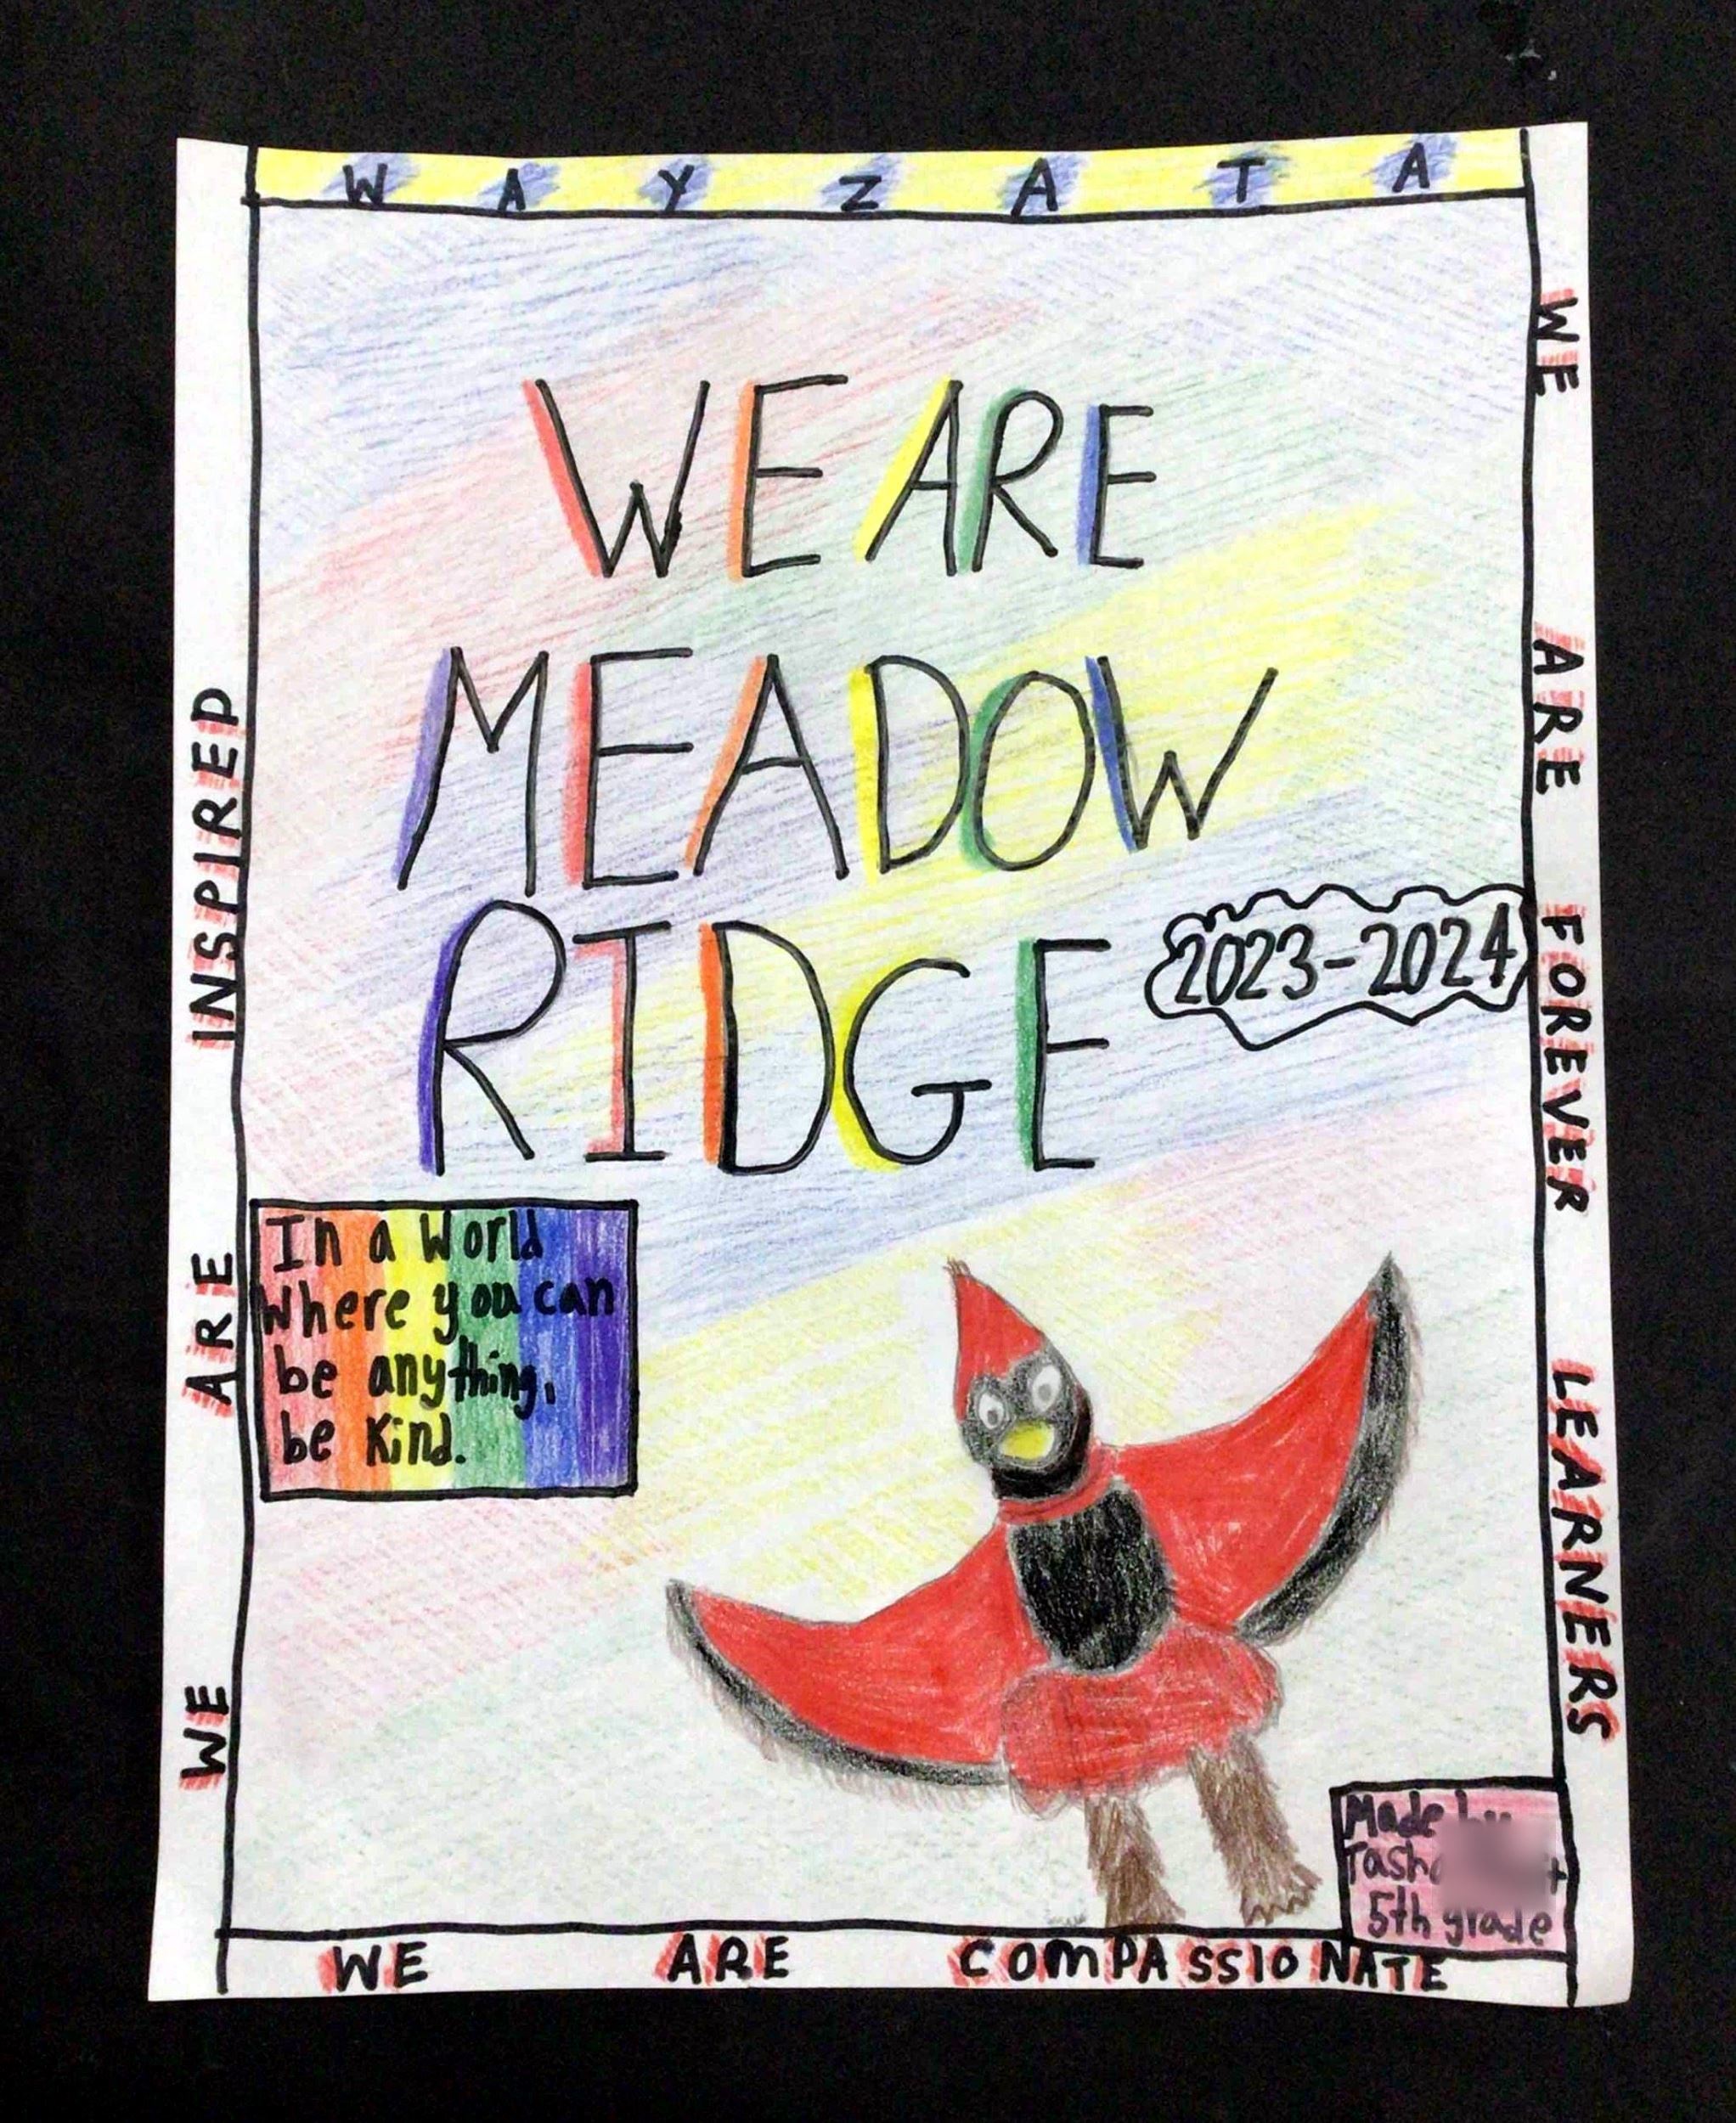 WAYZATA
WE ARE
MEADOW
RIDGE
2023-2024
In a World
Where you can
be anything,
be Kind.
WE ARE INSPIRED
WE ARE FOREVER LEARNERS
Made by
5th grade
WE ARE COMPASSIONATE